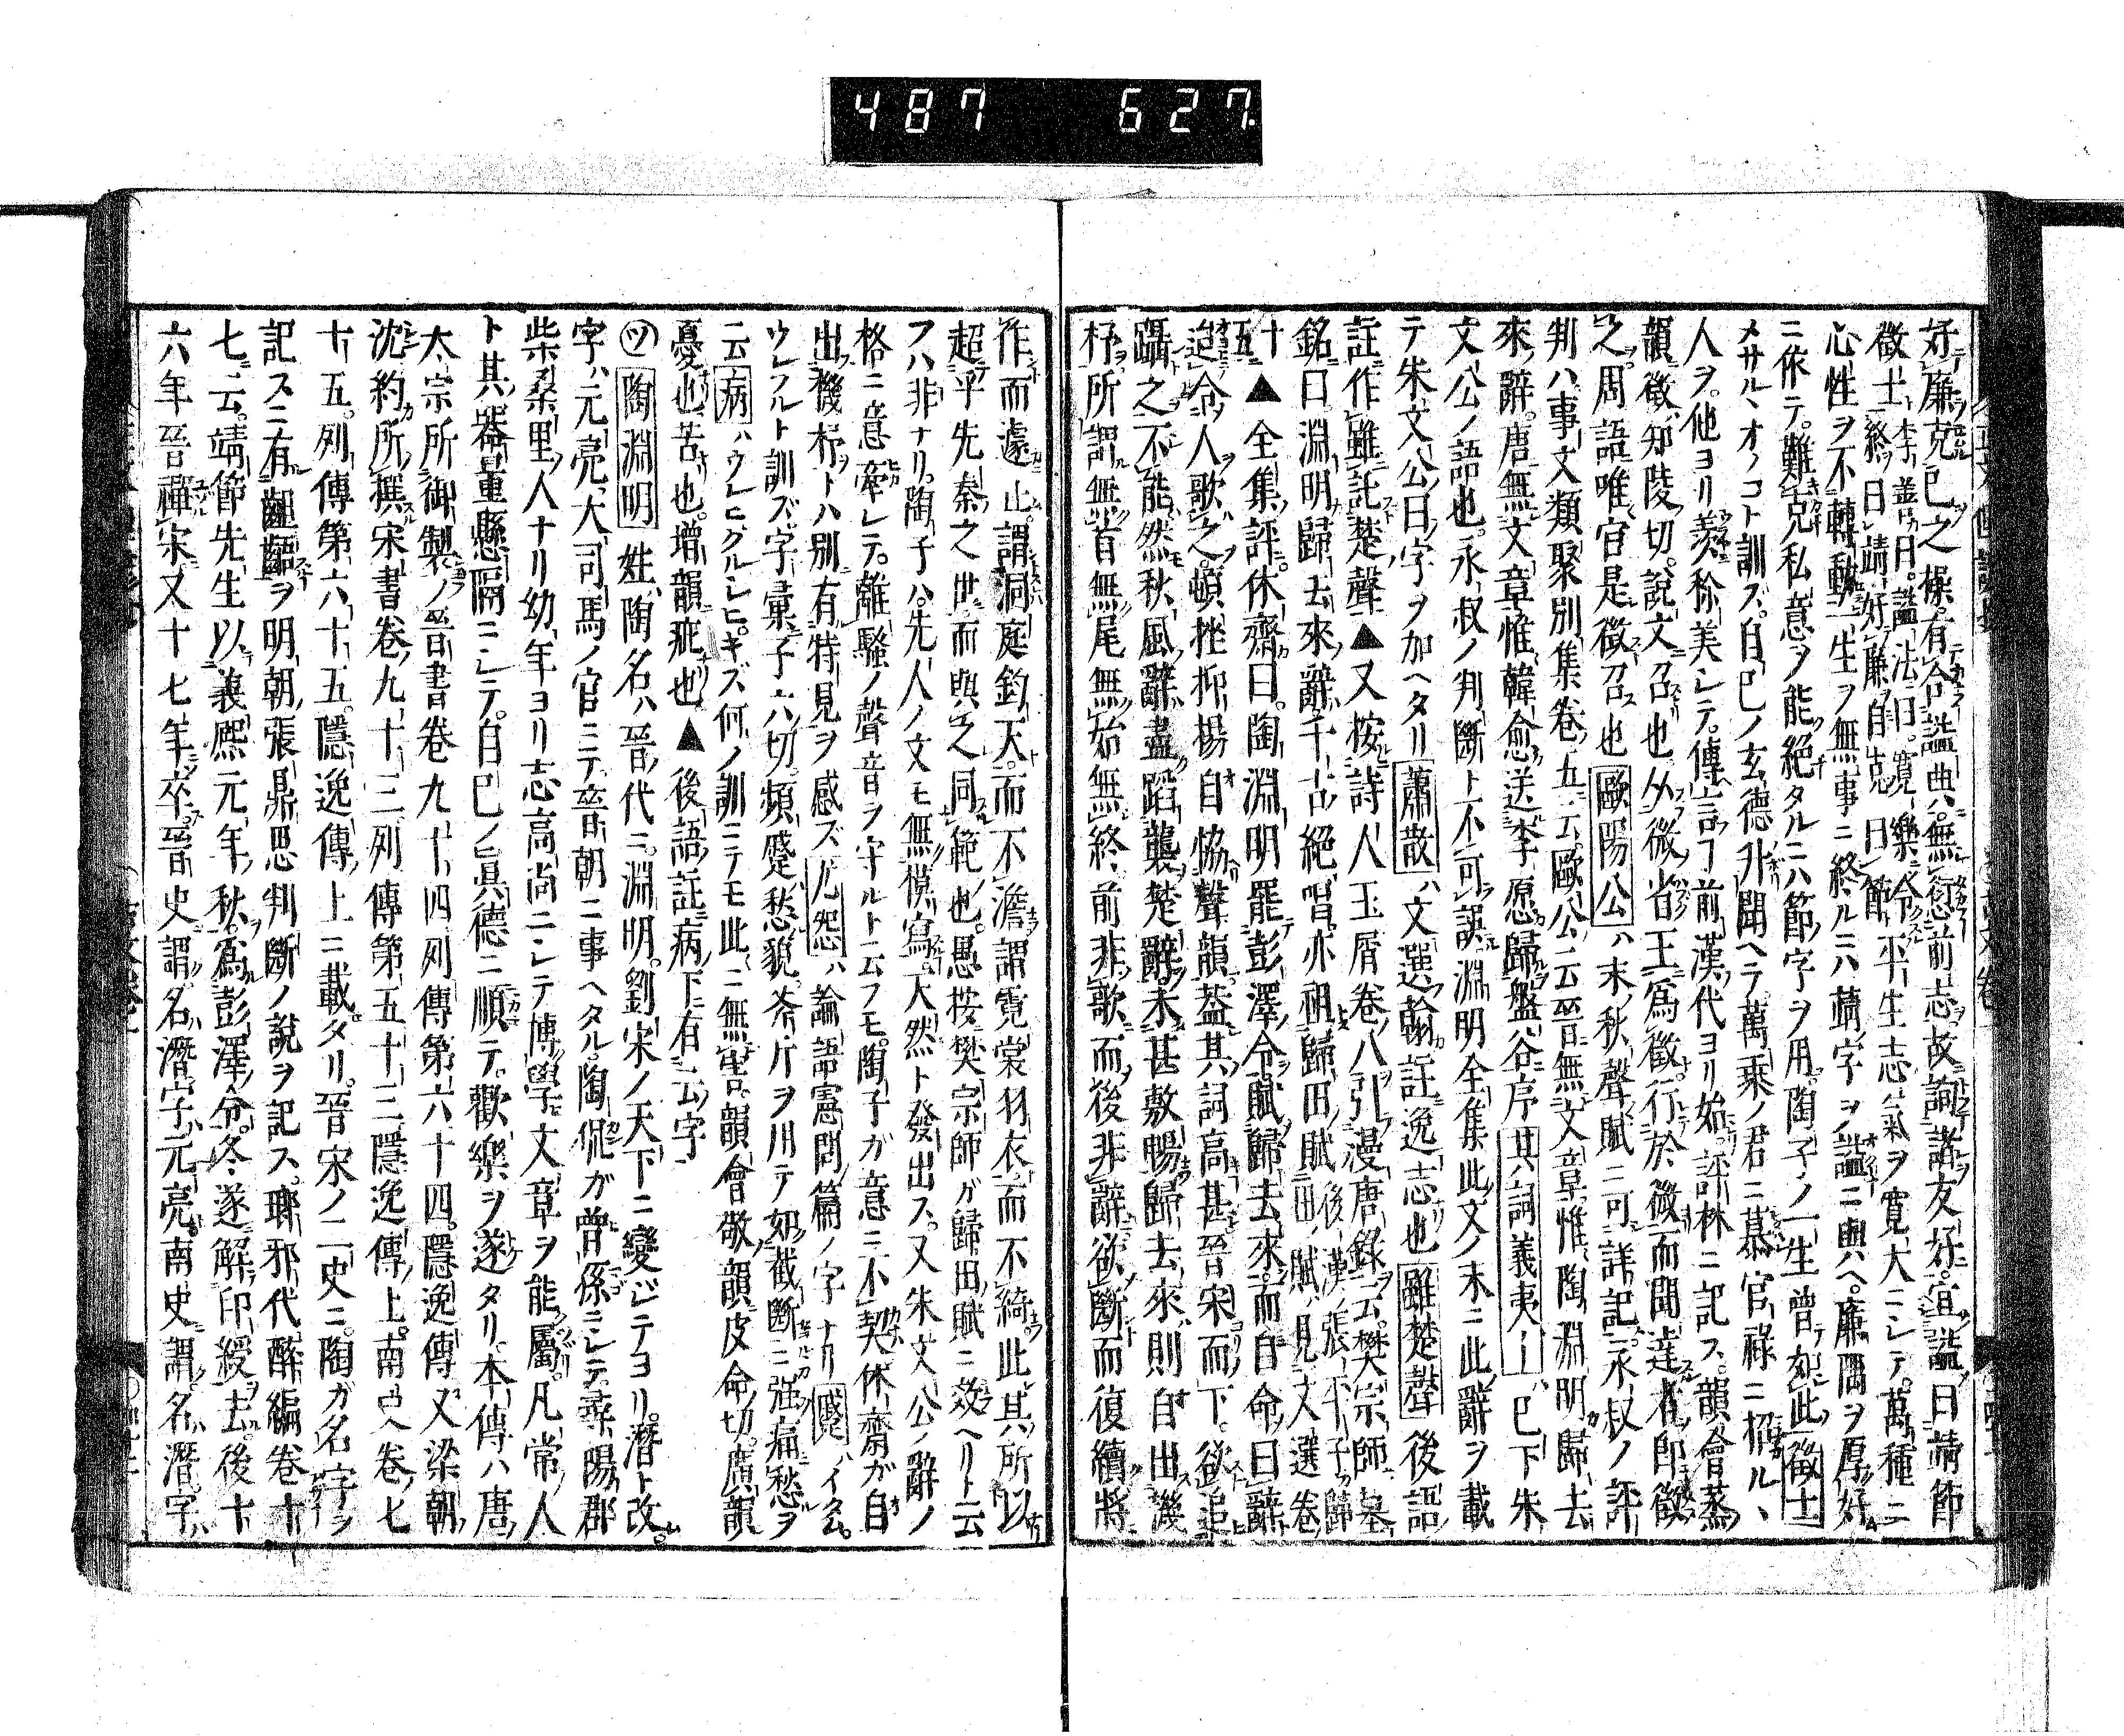 487 627
好廉克己之操有合謚典無愆前志故詢諸友好宜謚曰靖節
徵士李善曰謚法曰寬樂令終曰靖好廉自克曰節平生志氣ヲ寛大ニシテ萬種ニ
心性ヲ不轉動一生ヲ無事ニ終ルニハ靖ノ字ヲ謚ニ與ヘ廉隅ヲ厚好
ニ依テ難克私意ヲ能絶タルニハ節ノ字ヲ用陶子ノ一生曾如此徵士ハ
メサルヽオノコト訓ズ自己ノ玄德升聞ヘテ萬乘ノ君ニ慕官祿ニ招ルヽ
人ヲ他ヨリ羨称美シテ傳言フ前漢ノ代ヨリ始評林ニ記ス韻會蒸ノ
韻徵知陵切說文召也从微省壬爲徵行於微而聞達者卽徵
之周語唯官是徵召也歐陽公ハ末ノ秋聲ノ賦ニ可詳記永叔ノ評
判ハ事文類聚別集卷五云歐公云晉無文章惟陶淵明歸去
來辭唐無文章惟韓愈送李愿歸盤谷序其詞義夷ー巳下朱
文公ノ語也永叔ノ判斷ト不可誤淵明全集此文ノ末ニ此辭ヲ載
テ朱文公曰ノ字ヲ加ヘタリ蕭散ハ文選翰註逸志也雖楚聲後語
註作雖託楚聲▲又按詩人玉屑卷八引漫唐錄云樊宗師墓
銘曰淵明歸去來辭千古絶唱亦祖歸田賦後漢ノ張平子ガ歸田ノ賦ハ見文選卷十五
▲全集評休齋曰陶淵明罷彭澤令賦歸去來而自命曰辭
迨令人歌之頓挫抑揚自恊聲韻葢其詞高甚晉宋而下欲追
躡之不能然秋風辭盡蹈襲楚辭未甚敷暢歸去來則自出機
杼所謂無首無尾無始無終前非歌而後非辭欲斷而復續將
作而遽止謂洞庭鈞天而不澹謂霓裳羽衣而不綺此其所以
超乎先秦之世而與之同範也愚按樊宗師ガ歸田賦ニ效ヘリト云
フハ非ナリ陶子ハ先人ノ文モ無模寫天然ト發出ス又朱文公ノ辭ノ
格ニ意牽レテ離騷ノ聲音ヲ守ルト云フモ陶子ガ意ニ不契休齋ガ自
出機杼ヲトハ別有特見ヲ感ズ尤怨ハ論語憲問ノ篇ノ字ナリ蹙ハイタム
ウレフルト訓ズ字彙子六切頻蹙愁貌斧斤ヲ用テ如截斷ニ強痛愁ヲ
云病ハウレヒグルシヒキズ何ノ訓ニテモ此ニ無害韻會敬韻皮命切廣韻
憂也苦也增韻疵也▲後語註病下有云字
ツ陶淵明姓ハ陶名ハ晉ノ代ニ淵明劉宋ノ天下ニ變ジテヨリ潛ト改
字ハ元亮大司馬ノ官ニテ晉朝ニ事ヘタル陶侃ガ曾孫ニシテ尋陽郡
柴桑里ノ人ナリ幼年ヨリ志高尚ニシテ博學文章ヲ能屬凡常ノ人
ト其ノ器量懸隔ニシテ自己ノ眞德ニ順テ歡樂ヲ遂タリ本傳ハ唐ノ
太宗所御製ノ晉書卷九十四列傳第六十四隱逸傳又梁朝ノ
沈約所撰宋書卷九十三列傳第五十三隱逸傳上南史卷七
十五列傳第六十五隱逸傳ノ上ニ載タリ晉宋ノ二史ニ陶ガ名字ヲ
記スニ有齟齬ヲ明朝ノ張鼎思判斷ノ說ヲ記ス瑯邪代醉編卷十
七云靖節先生以義熙元年秋爲彭澤令冬遂解印綬去後十
六年晉禪宋又十七年卒晉史謂名潛字元亮南史謂名潛字